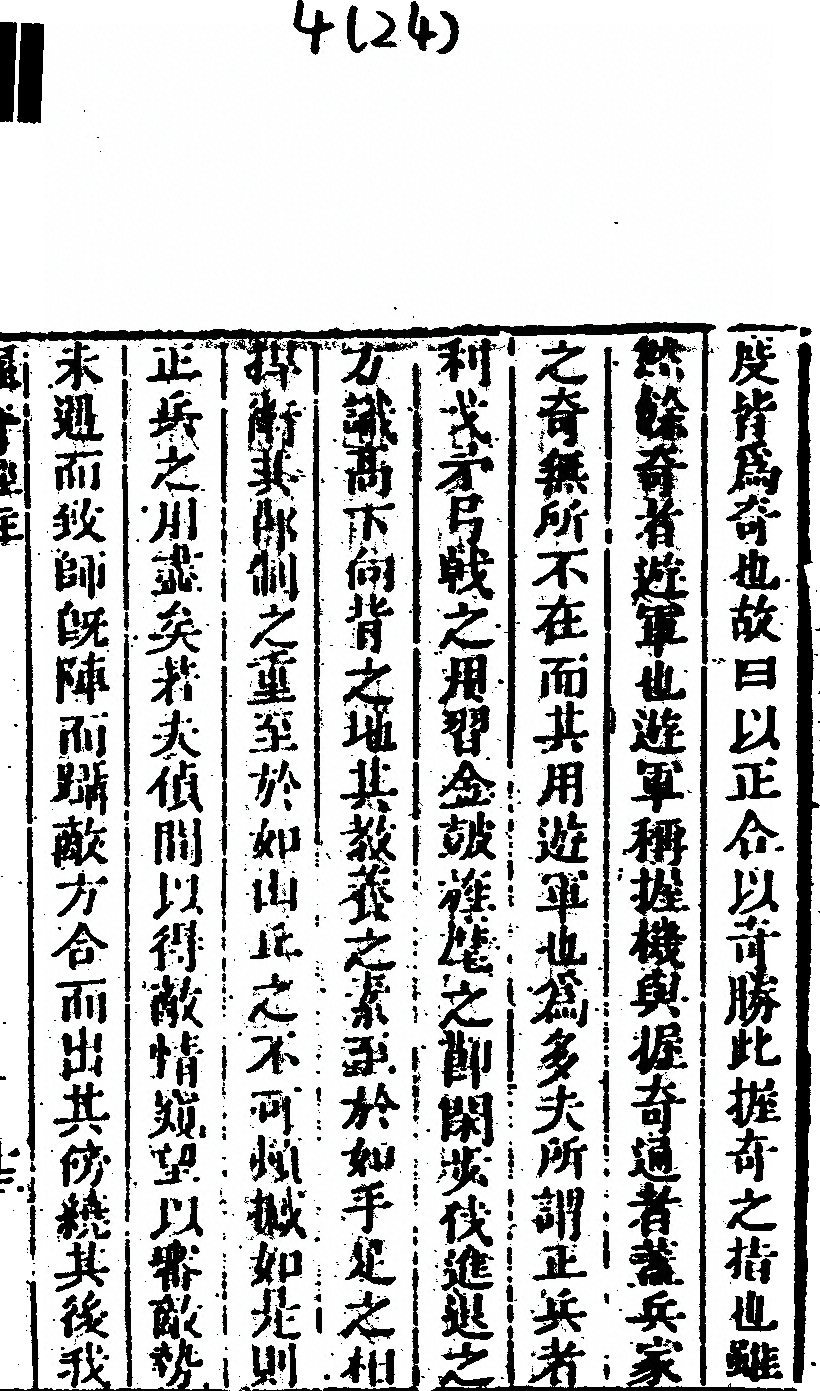 4(24)
度皆為奇也故曰以正合以奇勝此握奇之指也雖
然餘奇者遊軍也遊軍稱握機與握奇通者蓋兵家
之奇無所不在而其用遊軍也為多夫所謂正兵者
利戈矛弓戟之用習金鼓旌麾之節閑步伐進退之
方識高下向背之地其教養之素至於如手足之相
捍衛其部制之重至於如山丘之不可傾撼如是則
正兵之用盡矣若夫偵間以得敵情窺望以審敵勢
未遇而致師既陣而躡敵方合而出其傍繞其後我
握奇經注